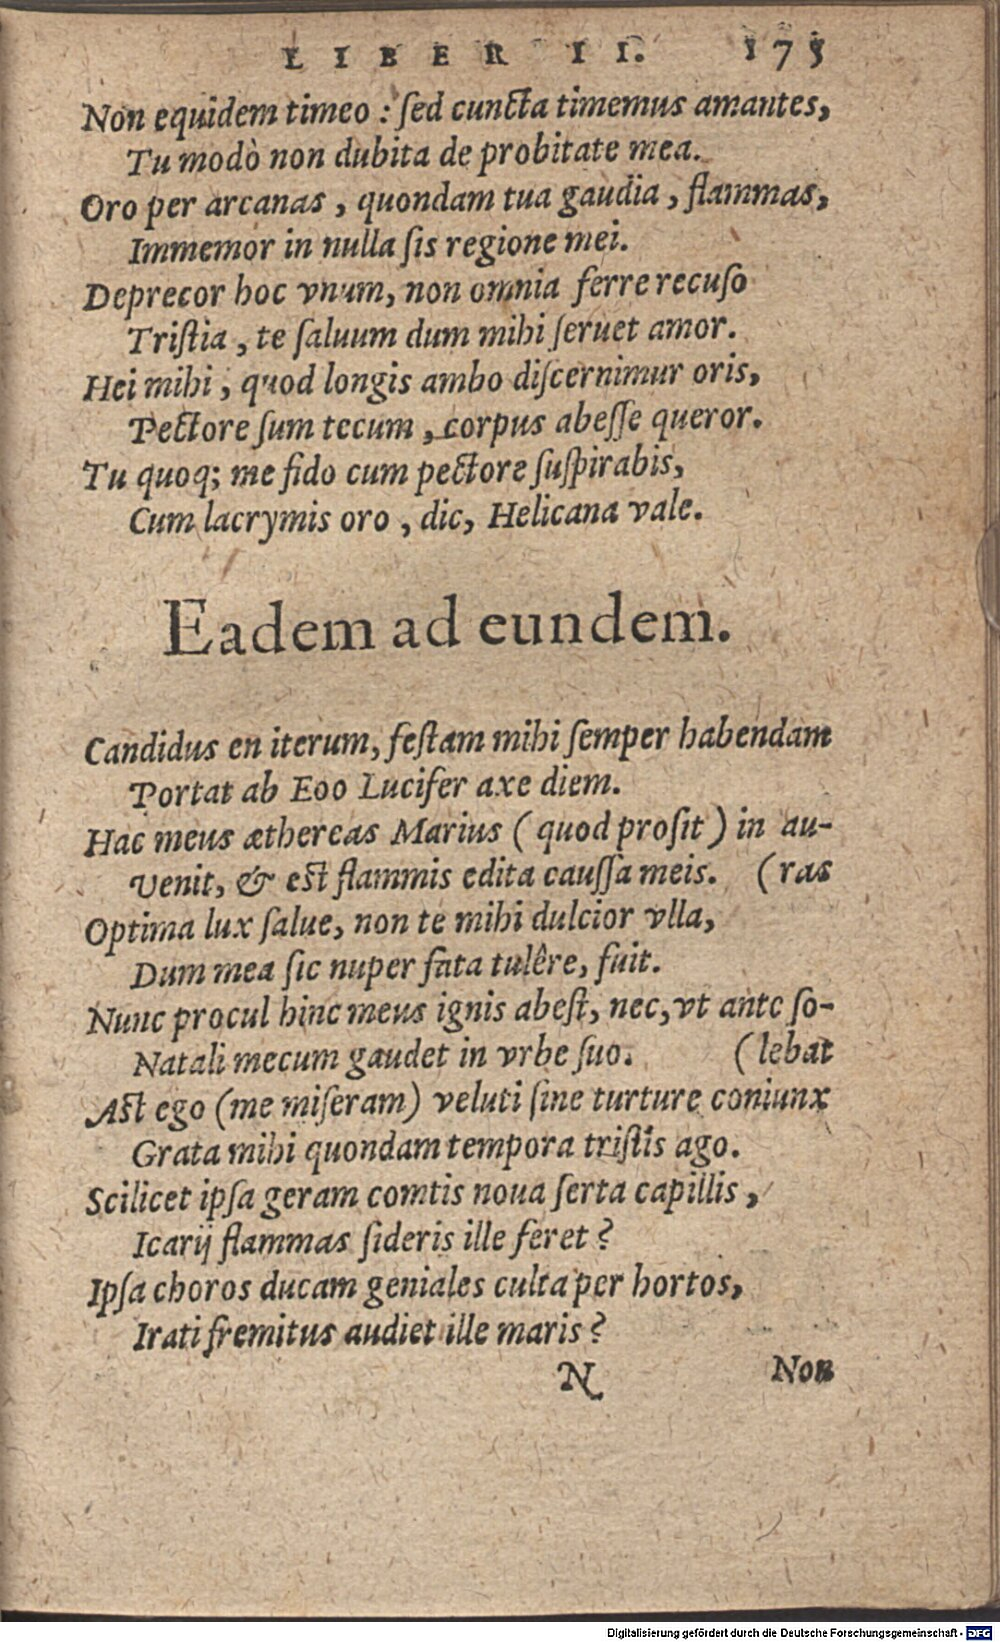 LIBER II. 175
Non equidem timeo : ſed cuncta timemus amantes,
Tu modò non dubita de probitate mea.
Oro per arcanas , quondam tua gaudia , flammas,
Immemor in nulla ſis regione mei.
Deprecor hoc vnum, non omnia ferre recuſo
Triſtia , te ſaluum dum mihi ſeruet amor.
Hei mihi , quod longis ambo diſcernimur oris,
Pectore ſum tecum , corpus abeſſe queror.
Tu quoq; me fido cum pectore ſuſpirabis,
Cum lacrymis oro , dic, Helicana vale.
Eadem ad eundem.
Candidus en iterum, feſtam mihi ſemper habendam
Portat ab Eoo Lucifer axe diem.
Hac meus æthereas Marius ( quod proſit ) in au-
Venit, & eſt flammis edita cauſſa meis. (ras
Optima lux ſalue, non te mihi dulcior vlla,
Dum mea ſic nuper fata tulêre, fuit.
Nunc procul hinc meus ignis abeſt, nec, vt ante ſo-
Natali mecum gaudet in vrbe ſuo. (lebat
Aſt ego (me miſeram) veluti ſine turture coniunx
Grata mihi quondam tempora triſtis ago.
Scilicet ipſa geram comtis noua ſerta capillis ,
Icarij flammas ſideris ille feret ?
Ipſa choros ducam geniales culta per hortos,
Irati fremitus audiet ille maris ?
N Non
Digitalisierung gefördert durch die Deutsche Forschungsgemeinschaft - DFG